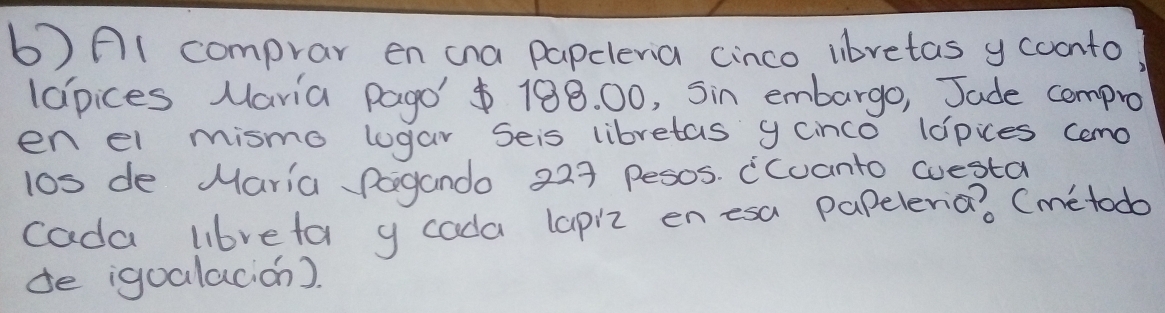 b) Al comprar en una papeleria cinco libretas y cuanto;
lápices María Pagó $ 188.00, sin embargo, Jade compro
en el mismo lugar seis libretas y cinco lápices como
los de María pagando 227 Pesos. ¿Cuanto cuesta
cada libreta y cada lapiz en esa papeleria? (método
de igualación).